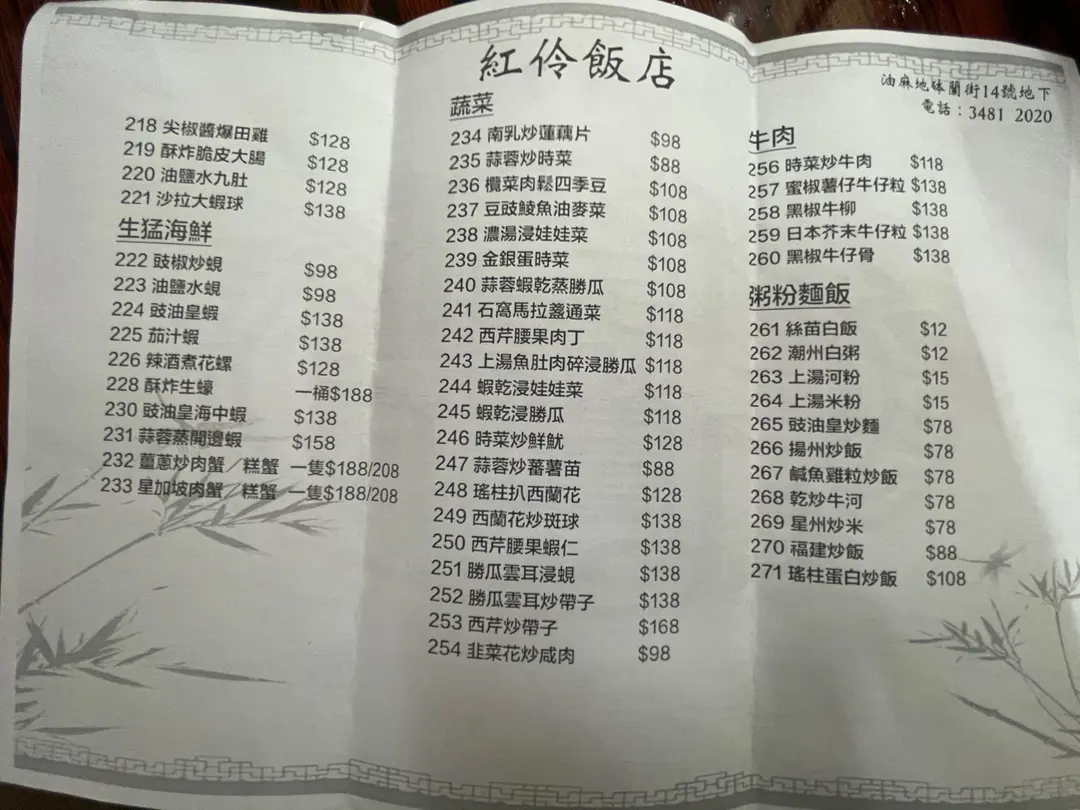 紅伶飯店
油麻地砵蘭街14號地下
電話：3481 2020
218 尖椒醬爆田雞 $128
219 酥炸脆皮大腸 $128
220 油鹽水九肚 $128
221 沙拉大蝦球 $138
生猛海鮮
222 豉椒炒蜆 $98
223 油鹽水蜆 $98
224 豉油皇蝦 $138
225 茄汁蝦 $138
226 辣酒煮花螺 $128
228 酥炸生蠔 一桶$188
230 豉油皇海中蝦 $138
231 蒜蓉蒸開邊蝦 $158
232 薑蔥炒肉蟹／糕蟹 一隻$188/208
233 星加坡肉蟹／糕蟹 一隻$188/208
蔬菜
234 南乳炒蓮藕片 $98
235 蒜蓉炒時菜 $88
236 欖菜肉鬆四季豆 $108
237 豆豉鯪魚油麥菜 $108
238 濃湯浸娃娃菜 $108
239 金銀蛋時菜 $108
240 蒜蓉蝦乾蒸勝瓜 $108
241 石窩馬拉盞通菜 $118
242 西芹腰果肉丁 $118
243 上湯魚肚肉碎浸勝瓜 $118
244 蝦乾浸娃娃菜 $118
245 蝦乾浸勝瓜 $118
246 時菜炒鮮魷 $128
247 蒜蓉炒蕃薯苗 $88
248 瑤柱扒西蘭花 $128
249 西蘭花炒斑球 $138
250 西芹腰果蝦仁 $138
251 勝瓜雲耳浸蜆 $138
252 勝瓜雲耳炒帶子 $138
253 西芹炒帶子 $168
254 韭菜花炒咸肉 $98
牛肉
256 時菜炒牛肉 $118
257 蜜椒薯仔牛仔粒 $138
258 黑椒牛柳 $138
259 日本芥末牛仔粒 $138
260 黑椒牛仔骨 $138
粥粉麵飯
261 絲苗白飯 $12
262 潮州白粥 $12
263 上湯河粉 $15
264 上湯米粉 $15
265 豉油皇炒麵 $78
266 揚州炒飯 $78
267 鹹魚雞粒炒飯 $78
268 乾炒牛河 $78
269 星州炒米 $78
270 福建炒飯 $88
271 瑤柱蛋白炒飯 $108